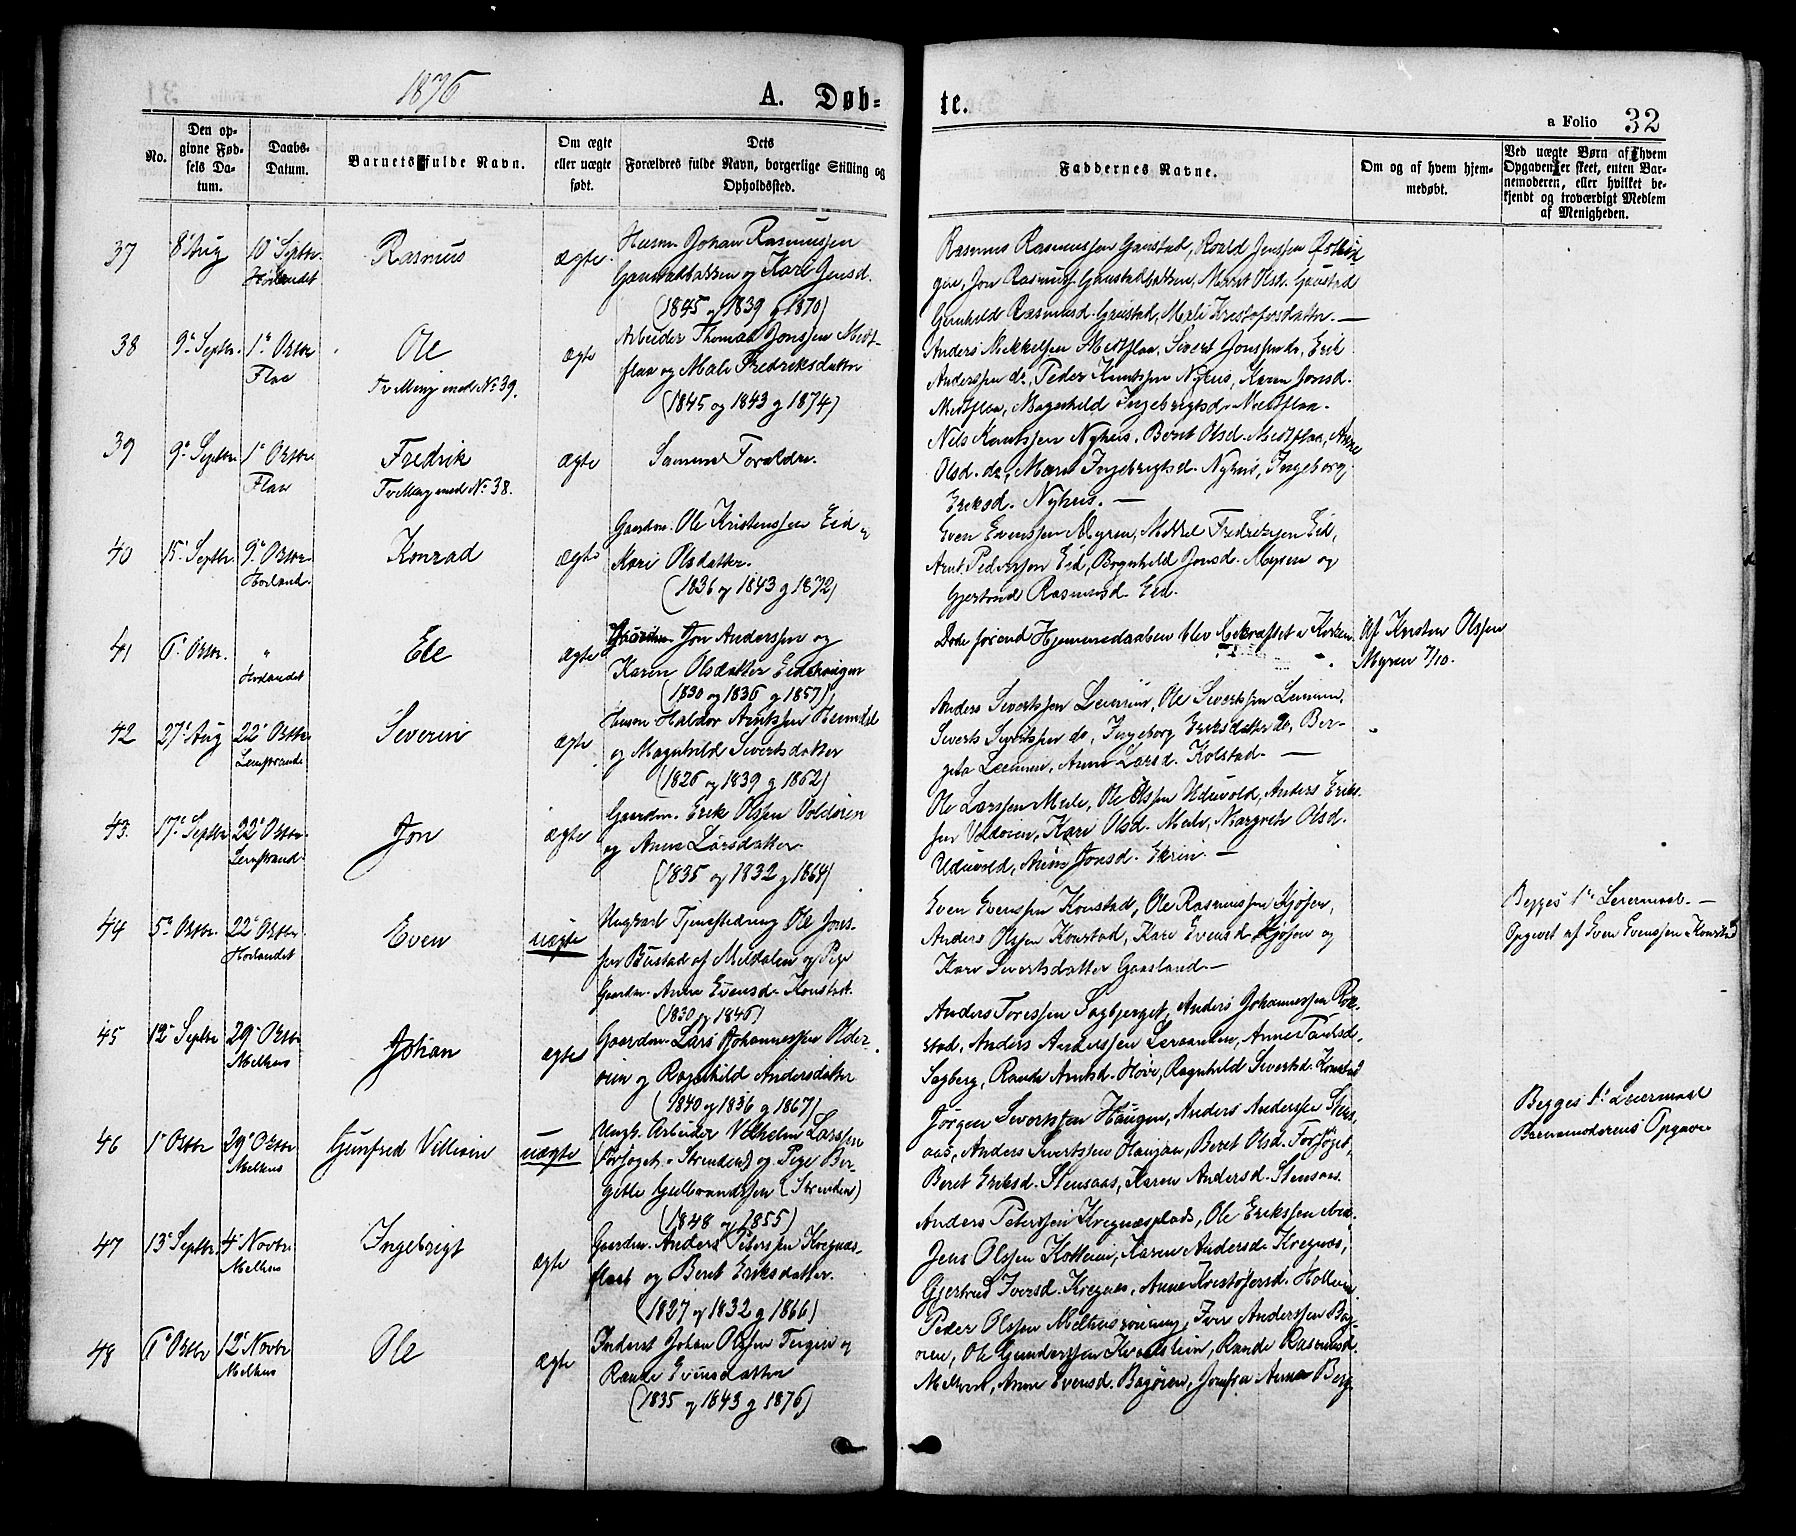 1876
A. Døb-
te.
a Folio 32
No.
Den opgivne Fødsels Datum.
Daabs-Datum.
Barnets fulde Navn.
Om ægte eller uægte født.
Dets Forældres fulde Navn, borgerlige Stilling og Opholdssted.
Faddernes Navne.
Om og af hvem hjemmedøbt.
Ved uægte Børn af hvem Opgaven er skeet, enten Barnemoderen, eller hvilket bekjendt og troværdigt Medlem af Menigheden.
37 8 Aug 10 Septbr. Horlandet Rasmus ægte
Husm. Johan Rasmussen
og Kari Jensd.
(1845 og 1839 g 1870)
Rasmus Rasmussen Gaustad, Roald Jenssen
Jon Rasmuss. Gaustadbakken, Merrit Olsd. Gaustad
Gunhild Rasmusd. Gaustad, Merli Kristofersdatter. —
38 9 Septbr. 1 Octbr Flaa Ole ægte
Tvilling med No 39.
Arbeider Thomas Jonssen Medt-
flaa og Mali Fredriksdatter
(1845 og 1843 g 1874)
Anders Mikkelsen Medtflaa, Sivert Jonssen do, Erik
Anderssen do, Peder Knutssen Nyhus, Karen Jonsd.
Medtflaa, Magnhild Ingebrigtsd. Medtflaa.
39 9 Septbr. 1 Octbr. Flaa Fredrik ægte
Tvilling med No 38.
Samme Forældre.
Nils Knutssen Nyhus, Beret Olsd. Medtflaa, Anne
Olsd. do, Marit Ingebrigtsd. Nyhus, Ingeborg
Eriksd. Nyhus. —
40 15 Septbr. 9 Octbr. Horland. Konrad ægte
Gaardm. Ole Kristenssen Eid og
Kari Olsdatter.
(1836 og 1843 g 1872)
Even Evenssen Myren, Mikkel Fredrikssen Eid,
Arnt Pederssen Eid, Ragnhild Jonsd. Myren og
Gjertrud Rasmusd. Eid.
41 6 Octbr. " Horlandet Ole ægte
Gaardm. Jon Anderssen og
Karen Olsdatter Eidshaugen
(1830 og 1836 g 1857)
Døde førend Hjemmedaaben blev bekræftet i Kirken.
Af Kristen Olssen
Myren 7/10.
42 27 Aug 22 Octbr Lenstrand Severin ægte
Husm Haldor Arntssen Heimdal
og Magnhild Sivertsdatter
(1826 og 1839 g 1862)
Anders Sivertssen Leinum, Ole Sivertssen Leinum,
Sivert Sivertssen do, Ingeborg Eriksdatter do, Ber-
gita Leinum, Anne Larsd. Kolstad. —
43. 17 Septbr 22 Octbr. Lenstrand. Jon ægte
Gaardm. Erik Olssen Voldøien
og Anne Larsdatter
(1835 og 1832 g 1864)
Ole Larssen Mele, Ole Olssen Uduvold, Anders Erik-
sen Voldøien, Kari Olsd. Mele, Margreth Olsd.
Uduvold, Anne Jonsd. Ekren. —
44 5 Octbr. 22 Octbr Horlandet Even uægte
Ungkarl Tjenestedreng Ole Jons-
sen Bustad af Meldalen og Pige
Gaardm. Anne Evensd. Konstad.
(1830 og 1846)
Even Evenssen Konstad, Ole Rasmussen Kjøsen,
Anders Olssen Konstad, Kari Evensd. Kjøsen og
Kari Sivertsdatter Gaasland. —
Begges 1e Leiermaal. —
Opgivet af Even Evenssen Konstad
45 12 Septbr 29 Octbr Melhus Johan ægte
Gaardm. Lars Johannessen Older-
øien og Ragnhild Andersdatter
(1840 og 1836 g 1867)
Anders Toressen Sagbjerget, Anders Johannessen Rok-
stad, Anders Anderssen Leraanden, Anne Paulsd.
Sagberg, Rande Arntsd. Hove, Ragnhild Sivertsd. Konstad
46 1 Octbr 29 Octbr Melhus Gunfred Villiein uægte
Ungk. Arbeider Vilhelm Larssen
(Forsøget - Strinden) og Pige Ber-
gitte Gulbrandssen (Strinden)
(1848 og 1855)
Jørgen Sivertssen Haugen, Anders Anderssen Stens-
aas, Anders Sivertssen Haugan, Beret Olsd. Forsøget,
Beret Eriksd. Stensaas, Karen Andersd. Stensaas.
Begges 1e Leiermaal
Barnemoderens Opgave
47 13 Septbr. 4 Novbr. Melhus Ingebrigt ægte
Gaardm. Anders Peterssen Kregnæs-
plads og Beret Eriksdatter.
(1827 og 1832 g 1866)
Anders Peterssen Kregnæsplads, Ole Erikssen
Jens Olssen Kottum, Karen Andersd. Kregnæs,
Gjertrud Iversd. Kregnæs, Anne Kristofersd. Hollum.
48 6 Octbr 12 Novbr Melhus Ole ægte
Inderst Johan Olssen Teigen og
Rande Evensdatter
(1835 og 1843 g 1876)
Peder Olssen Melhus, Iver Anderssen Bag-
øien, Ole Gunderssen Kvalstein, Rande Rasmusd.
Melhus, Anne Evensd. Bagøien, Jomfru Anna Berg.